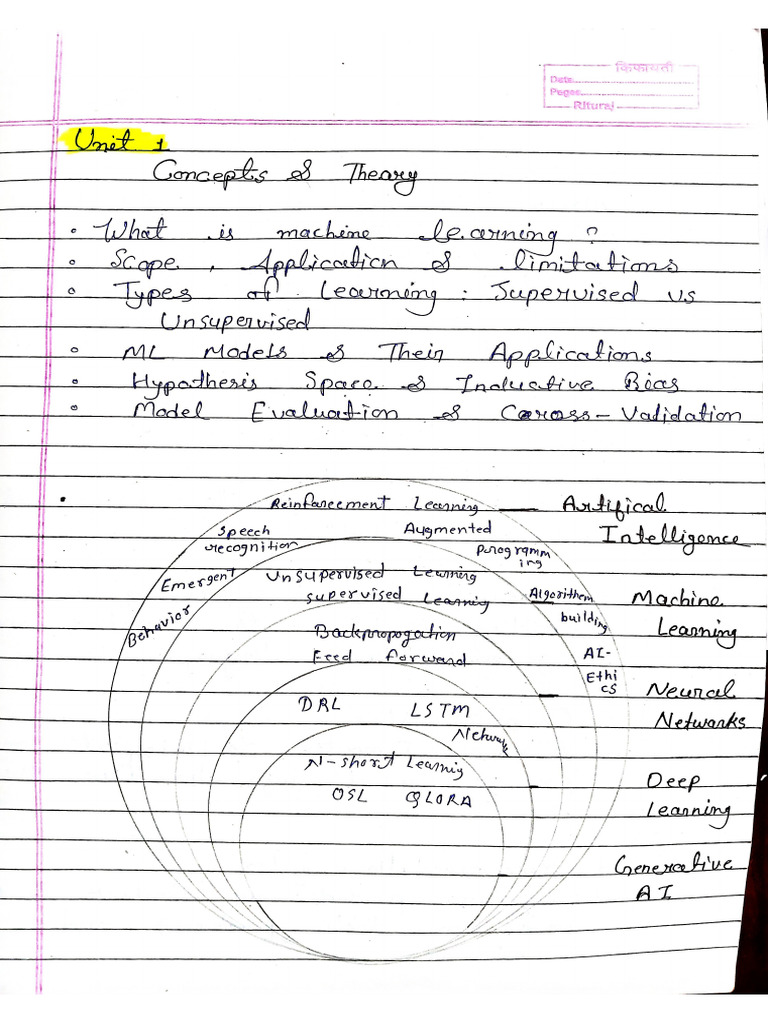 किफायती
Date
Pages
Rituraj
Unit 1
Concepts & Theory
• What is machine learning ?
• Scope, Application & limitations
• Types of Learning : Supervised vs
Unsupervised
• ML Models & Their Applications
• Hypothesis Space & Inductive Bias
• Model Evaluation & Cross-Validation
• Reinforcement Learning — Artifical
Intelligence
Speech
recognition
Augmented
programm
ing
Emergent
Behavior
Unsupervised Learning
supervised Learning
Algorithem
building
Machine
Learning
Backpropogation
Feed forward
AI-
Ethi
cs
Neural
Networks
DRL LSTM
Network
N-short Learning
OSL QLORA
Deep
Learning
Generative
AI